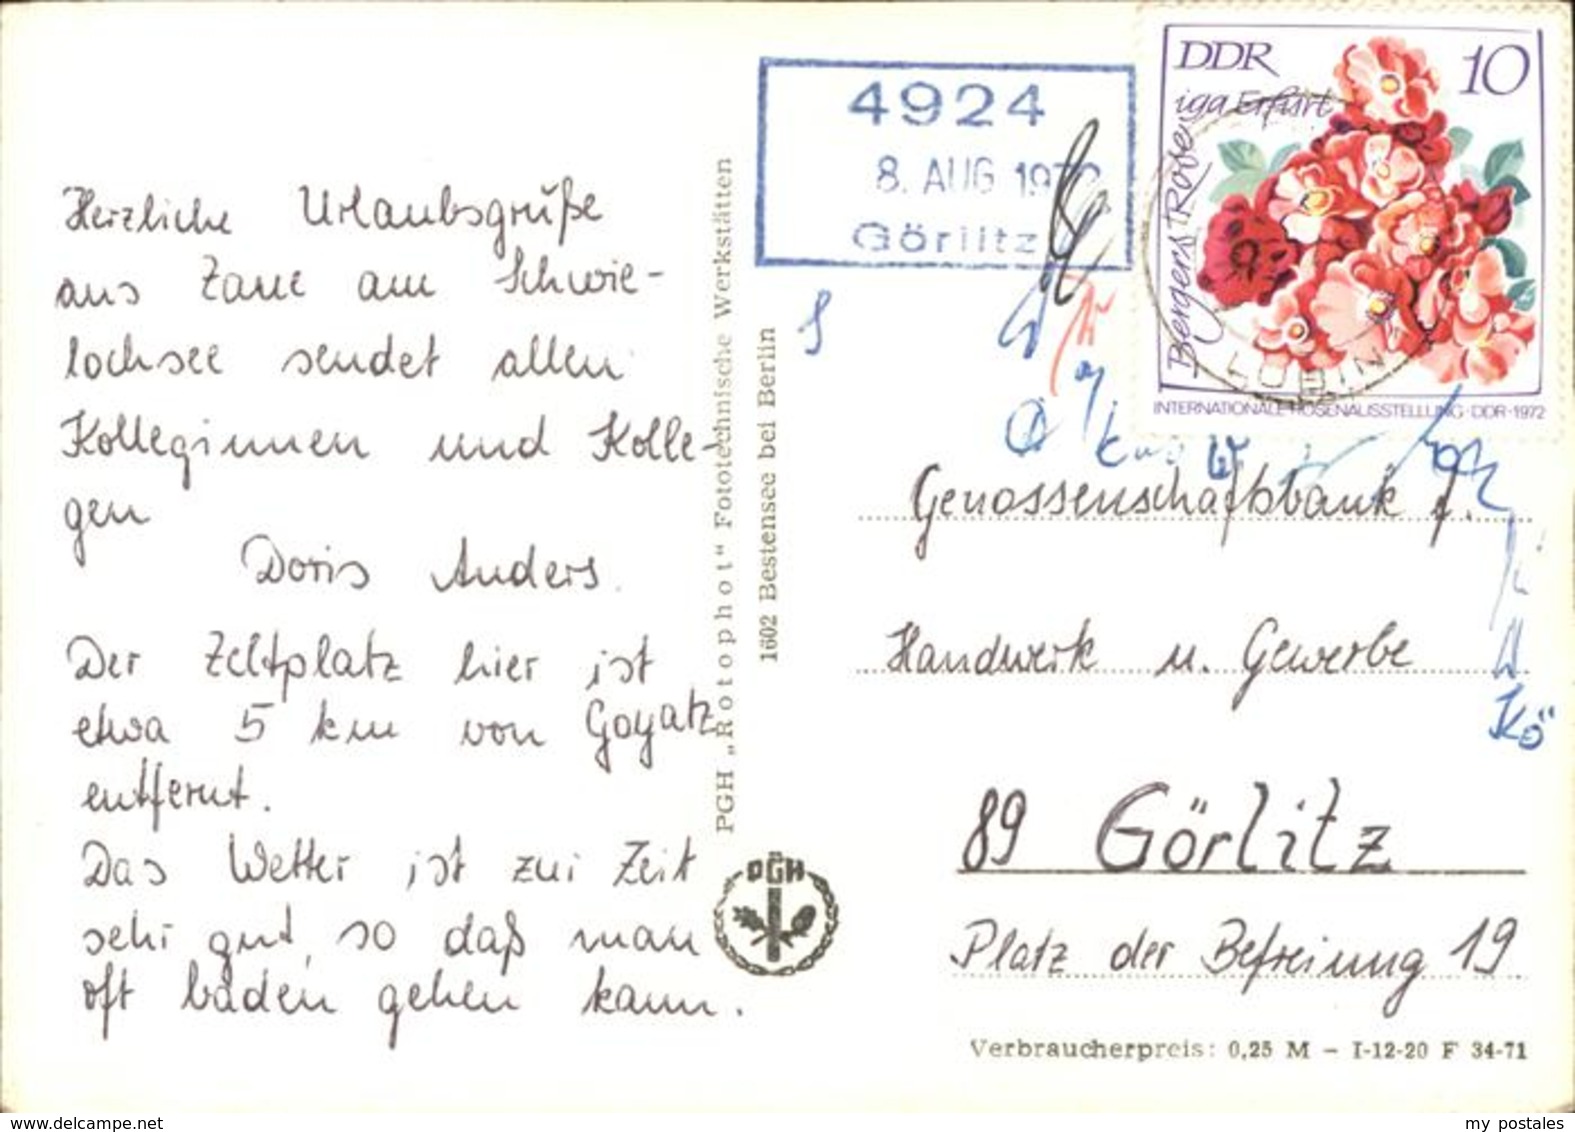 Herzliche Urlaubsgrüße
aus Zaue am Schwie-
lochsee sendet allen
Kolleginnen und Kolle-
gen
Doris Anders.
Der Zeltplatz hier ist
etwa 5 km von Goyatz
entfernt.
Das Wetter ist zur Zeit
sehr gut, so daß man
oft baden gehen kann.
PGH „Rotophot“ Fototechnische Werkstätten
1602 Bestensee bei Berlin
PGH
4924
8. AUG 1972
Görlitz
DDR 10
iga Erfurt
Bergers Rose
INTERNATIONALE ROSENAUSSTELLUNG·DDR-1972
Genossenschaftsbank f.
Handwerk u. Gewerbe
Kö
89 Görlitz
Platz der Befreiung 19
Verbraucherpreis: 0,25 M – I-12-20 F 34-71
www.delcampe.net
my postales